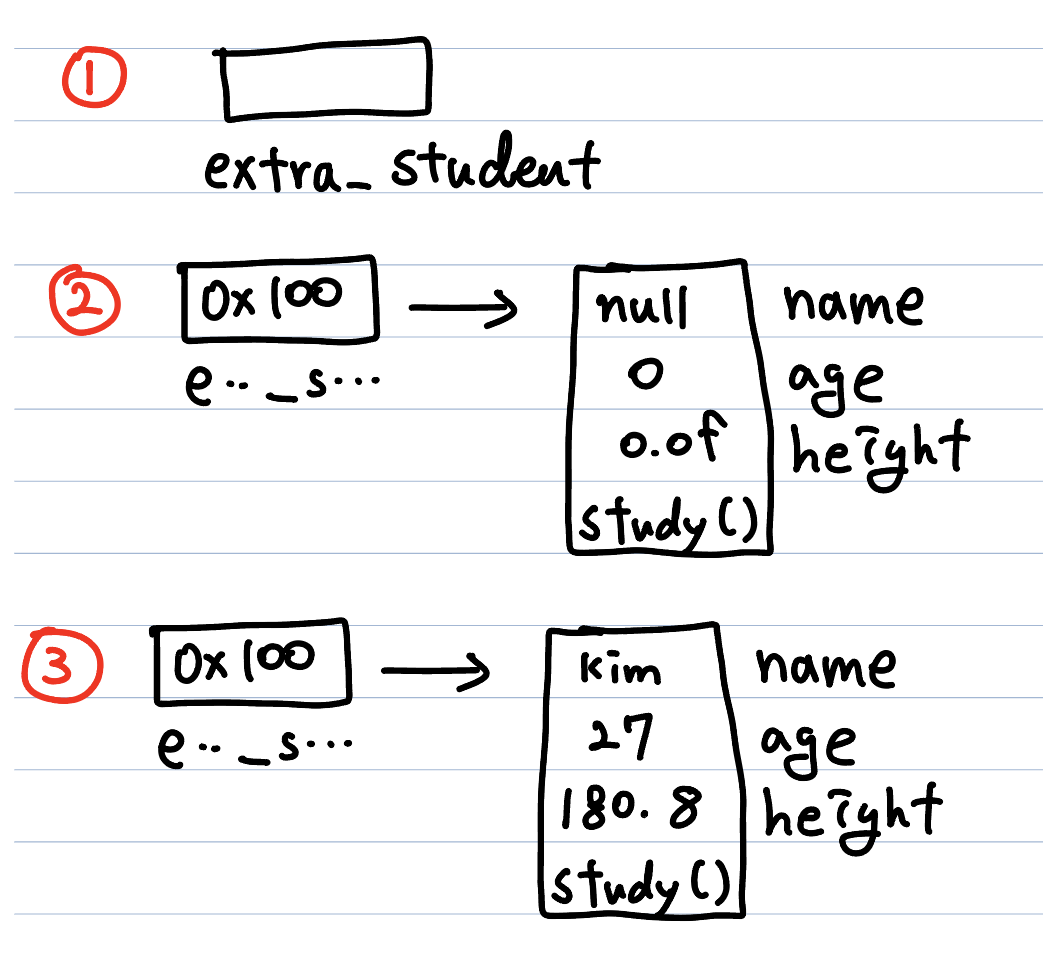 1
extra_student
2 0x100 → null name
0 age
e.._s... 0.0f height
study()
3 0x100 → kim name
27 age
e.._s... 180.8 height
study()